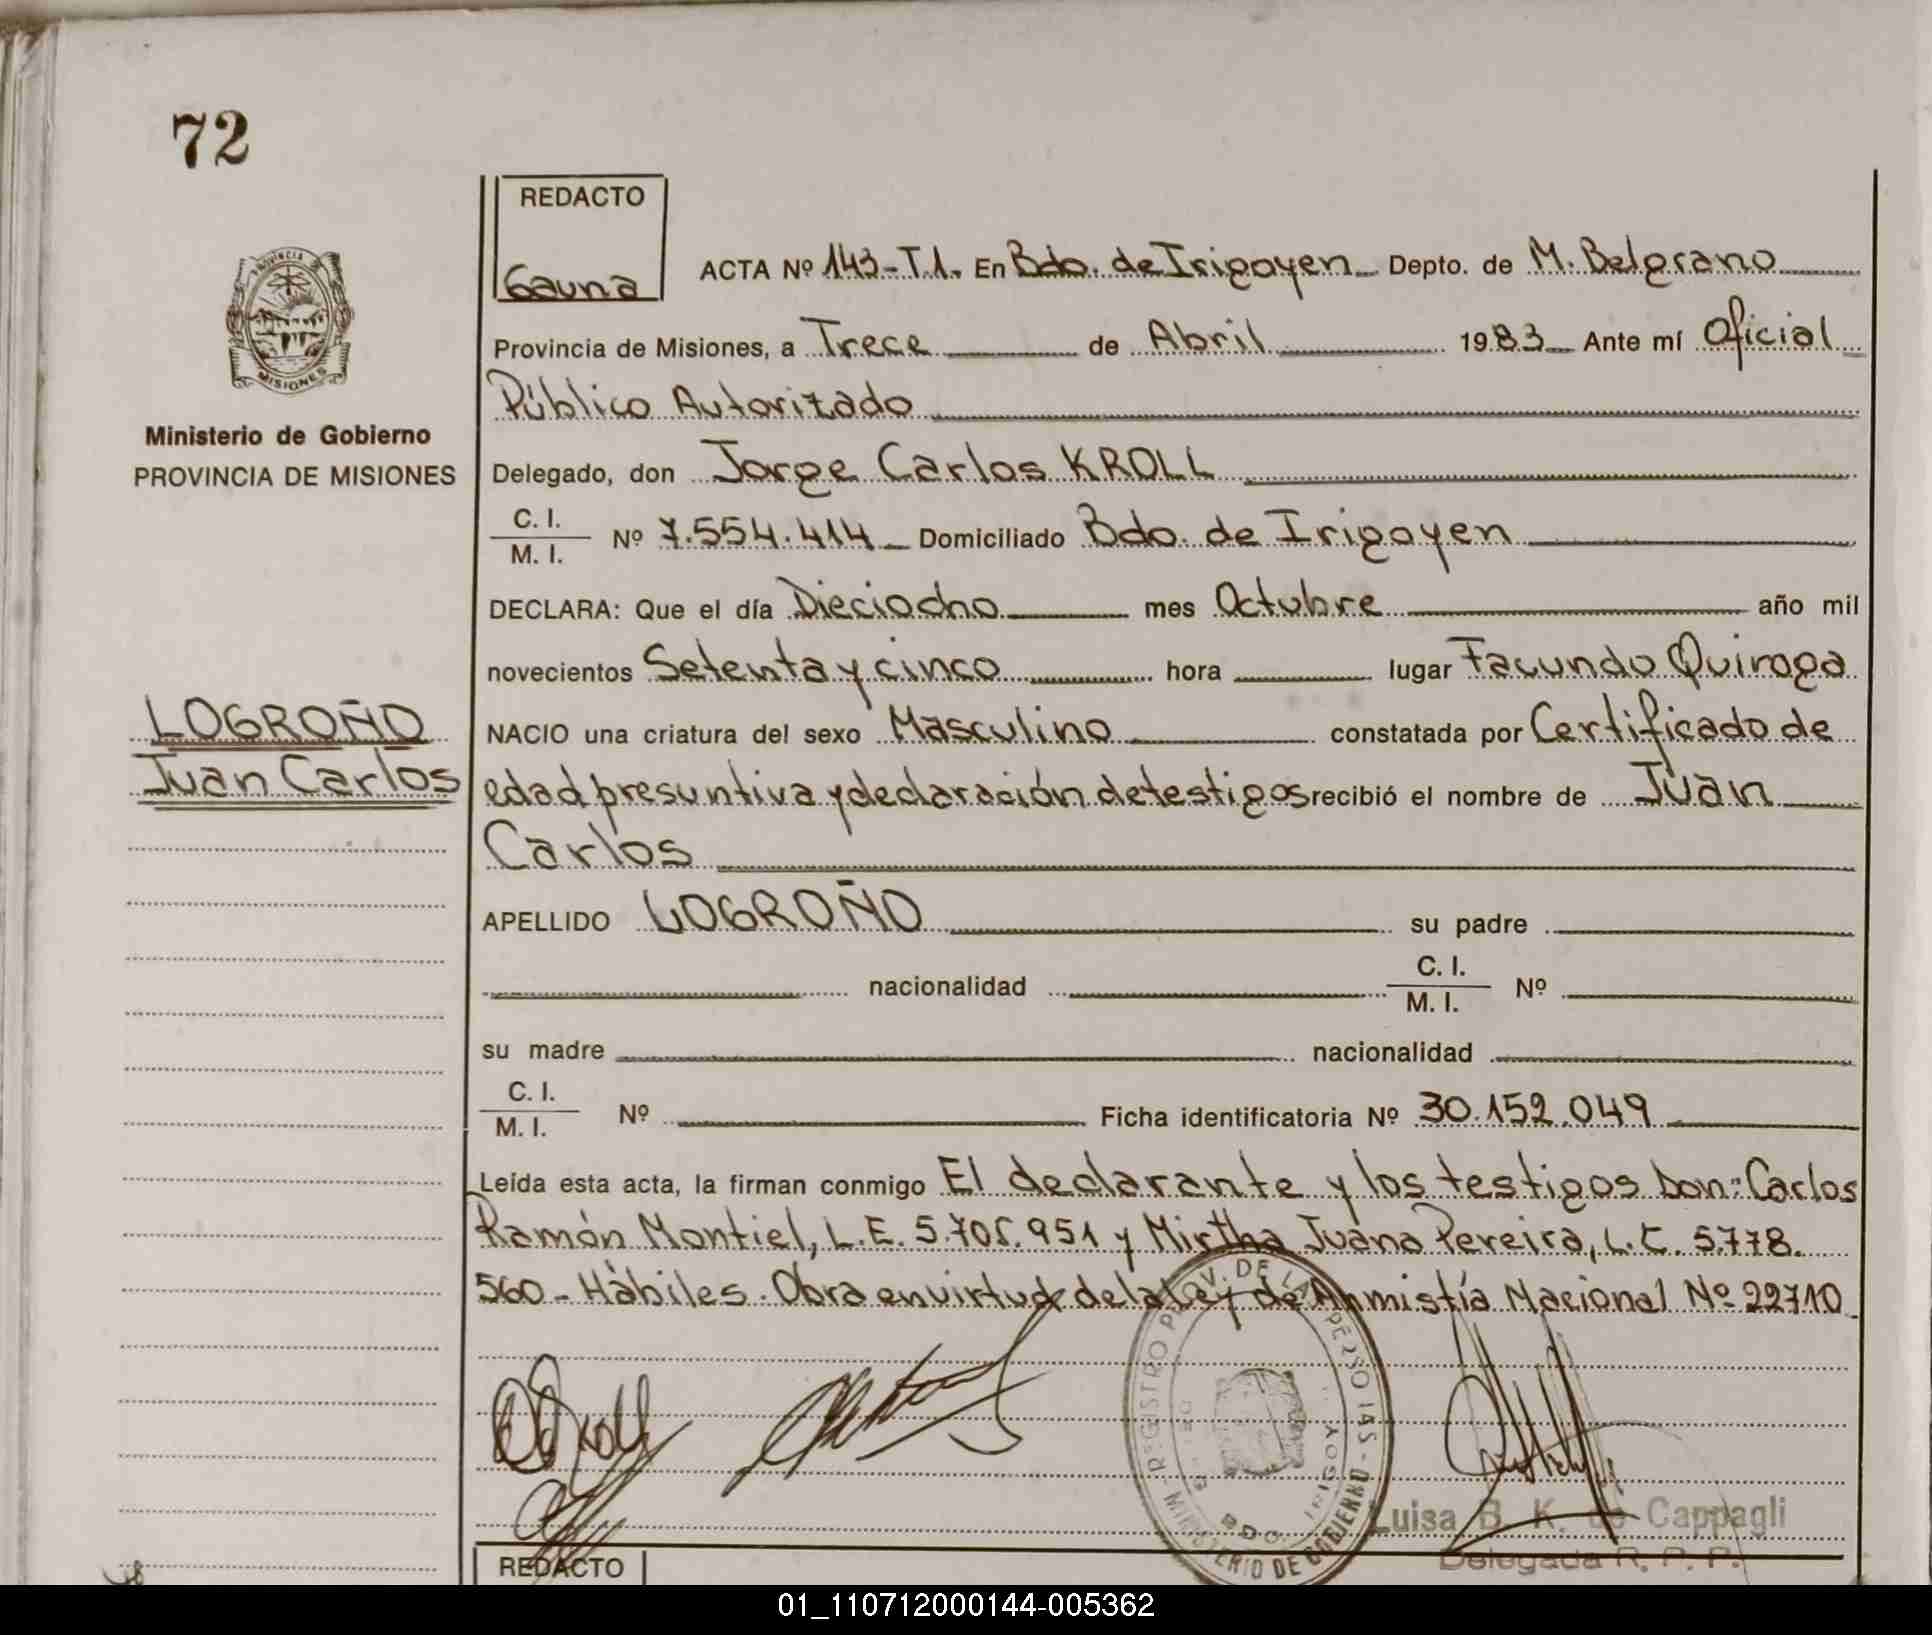 72
REDACTO
Gauna
ACTA Nº 143-T.1. En Bdo. de Irigoyen Depto. de M. Belgrano
Provincia de Misiones, a Trece de Abril 1983 Ante mí Oficial
Público Autorizado
PROVINCIA DE
MISIONES
Ministerio de Gobierno
PROVINCIA DE MISIONES
Delegado, don Jorge Carlos KROLL
C. I.
M. I. Nº 7.554.414 Domiciliado Bdo. de Irigoyen
DECLARA: Que el día Dieciocho mes Octubre año mil
novecientos Setenta y cinco hora lugar Facundo Quiroga
LOGROÑO
Juan Carlos
NACIO una criatura del sexo Masculino constatada por Certificado de
edad presuntiva y declaración de testigos recibió el nombre de Juan
Carlos
APELLIDO LOGROÑO su padre
nacionalidad C. I.
M. I. Nº
su madre nacionalidad
C. I.
M. I. Nº Ficha identificatoria Nº 30.152.049
Leída esta acta, la firman conmigo El declarante y los testigos Don: Carlos
Ramón Montiel, L.E. 5.705.951 y Mirtha Juana Pereira, L.C. 5.778.
560- Hábiles. Obra en virtud de la Ley de Anmistía Nacional Nº 22710
REGISTRO PROV. DE LAS PERSONAS - MINISTERIO DE GOBIERNO
BDO. IRIGOY
Luisa B. K. de Cappagli
Delegada R. P. P.
REDACTO
01_110712000144-005362